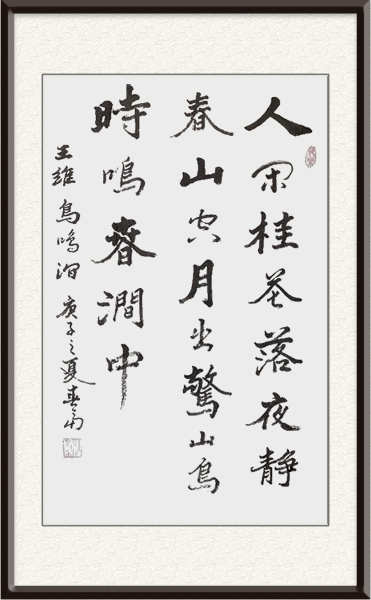 人闲桂花落夜静
春山空月出驚山鳥
時鳴春澗中
王維鳥鳴涧庚子之夏春雨